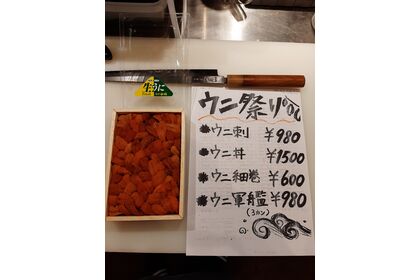 うに
ウニ祭り
ウニ刺 ¥980
ウニ丼 ¥1500
ウニ細巻 ¥600
ウニ軍艦 ¥980
(3カン)